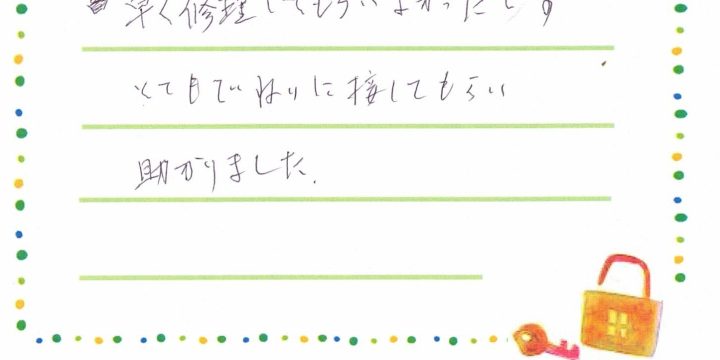 早く修理してもらいよかったです
とてもていねいに接してもらい
助かりました.